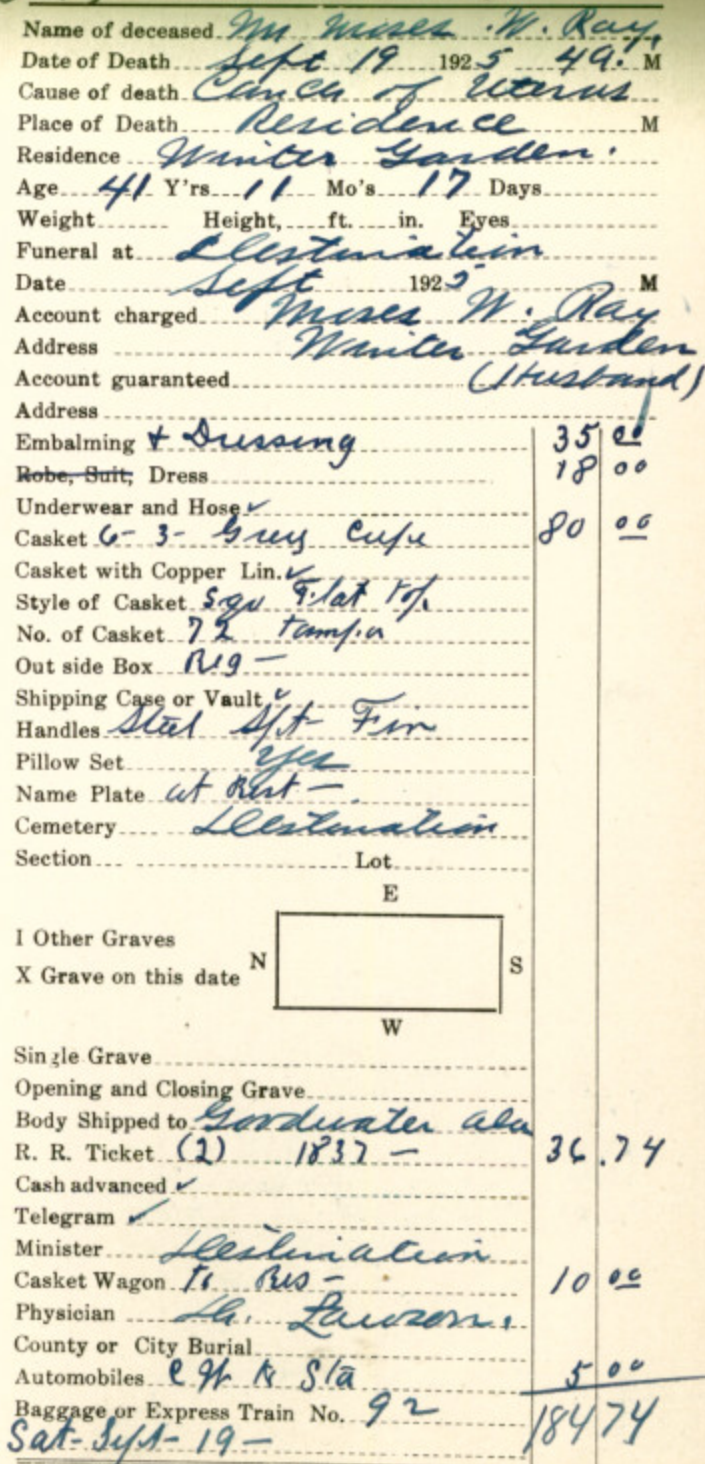 Name of deceased Mr Moses W. Ray,
Date of Death Sept 19 1925 49. M
Cause of death Canc of Uterus
Place of Death Residence M
Residence Winter Garden.
Age 41 Y'rs 11 Mo's 17 Days
Weight Height, ft. in. Eyes
Funeral at Destination
Date Sept 1925 M
Account charged Moses W. Ray
Address Winter Garden
Account guaranteed (Husband)
Address
Embalming + Dressing 35 00
Robe, Suit, Dress 18 00
Underwear and Hose ✓
Casket 6-3- Grey Crepe 80 00
Casket with Copper Lin. ✓
Style of Casket Sqr Flat Top
No. of Casket 72 Tampa
Out side Box Reg -
Shipping Case or Vault ✓
Handles Steel Fin
Pillow Set Yes
Name Plate At Rest -
Cemetery Destination
Section Lot
E
I Other Graves
N S
X Grave on this date
W
Single Grave
Opening and Closing Grave
Body Shipped to Goodwater Ala
R. R. Ticket (2) 1837 - 36.74
Cash advanced ✓
Telegram ✓
Minister Destination
Casket Wagon To Res - 10 00
Physician Dr. Lawson.
County or City Burial
Automobiles to Sta 5 00
Baggage or Express Train No. 92 184 74
Sat- Sept- 19 -